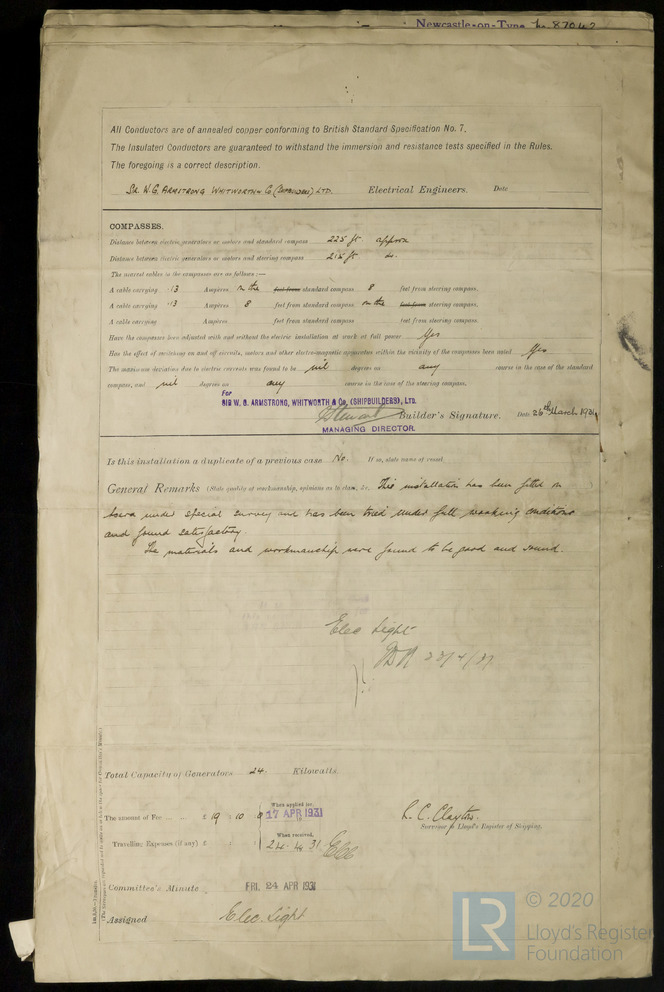 Newcastle-on-Tyne No. 87042
All Conductors are of annealed copper conforming to British Standard Specification No. 7.
The Insulated Conductors are guaranteed to withstand the immersion and resistance tests specified in the Rules.
The foregoing is a correct description.
Sir W. G. Armstrong Whitworth & Co (Shipbuilders) Ltd. Electrical Engineers. Date
COMPASSES.
Distance between electric generators or motors and standard compass 225 ft approx
Distance between electric generators or motors and steering compass ft do.
The nearest cables to the compasses are as follows:—
A cable carrying .13 Ampères on the feet from standard compass 8 feet from steering compass.
A cable carrying .13 Ampères 8 feet from standard compass on the feet from steering compass.
A cable carrying Ampères feet from standard compass feet from steering compass.
Have the compasses been adjusted with and without the electric installation at work at full power Yes
Has the effect of switching on and off circuits, motors and other electro-magnetic apparatus within the vicinity of the compasses been noted Yes
The maximum deviation due to electric currents was found to be nil degrees on any course in the case of the standard
compass, and nil degrees on any course in the case of the steering compass.
For
SIR W. G. ARMSTRONG, WHITWORTH & Co. (SHIPBUILDERS), LTD.
Builder's Signature. Date 26th March 1931
MANAGING DIRECTOR.
Is this installation a duplicate of a previous case No. If so, state name of vessel
General Remarks (State quality of workmanship, opinions as to class, &c. This installation has been fitted on
board under special survey and has been tried under full working conditions
and found satisfactory.
The materials and workmanship were found to be good and sound.
Elec Light
23/4/31
Total Capacity of Generators 24 Kilowatts
The amount of Fee £ 19 : 10 : 0 When applied for, 17 APR 1931
R. C. Clayton.
Surveyor to Lloyd's Register of Shipping.
Travelling Expenses (if any) £ : : When received, 24.4.31
Committee's Minute FRI. 24 APR 1931
Assigned Elec. Light
© 2020
LR Lloyd's Register
Foundation